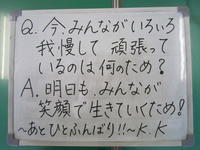 Q. 今、みんながいろいろ
我慢して 頑張って
いるのは何のため?
A. 明日も、みんなが
笑顔で生きていくため!
〜あとひとふんばり!!〜K.K